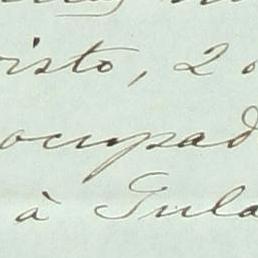 isto, 2 o
ocupad
à Gula